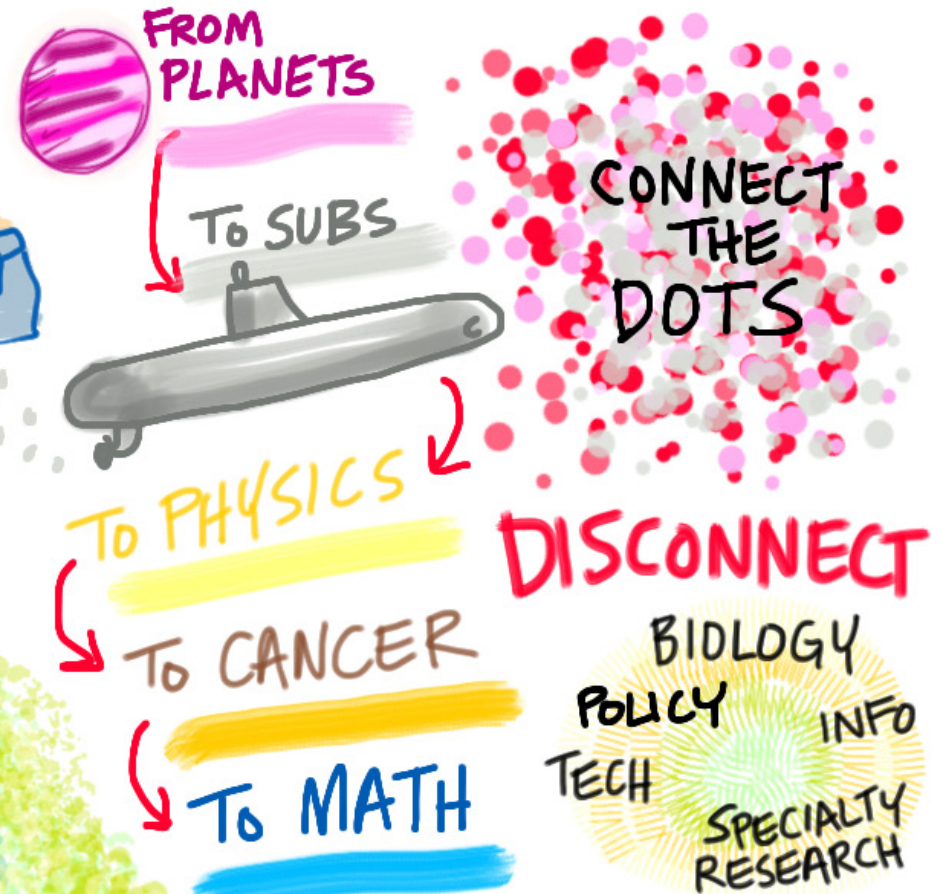 FROM
PLANETS
To SUBS
To PHYSICS
To CANCER
To MATH
CONNECT
THE
DOTS
DISCONNECT
BIOLOGY
POLICY
INFO
TECH
SPECIALTY
RESEARCH